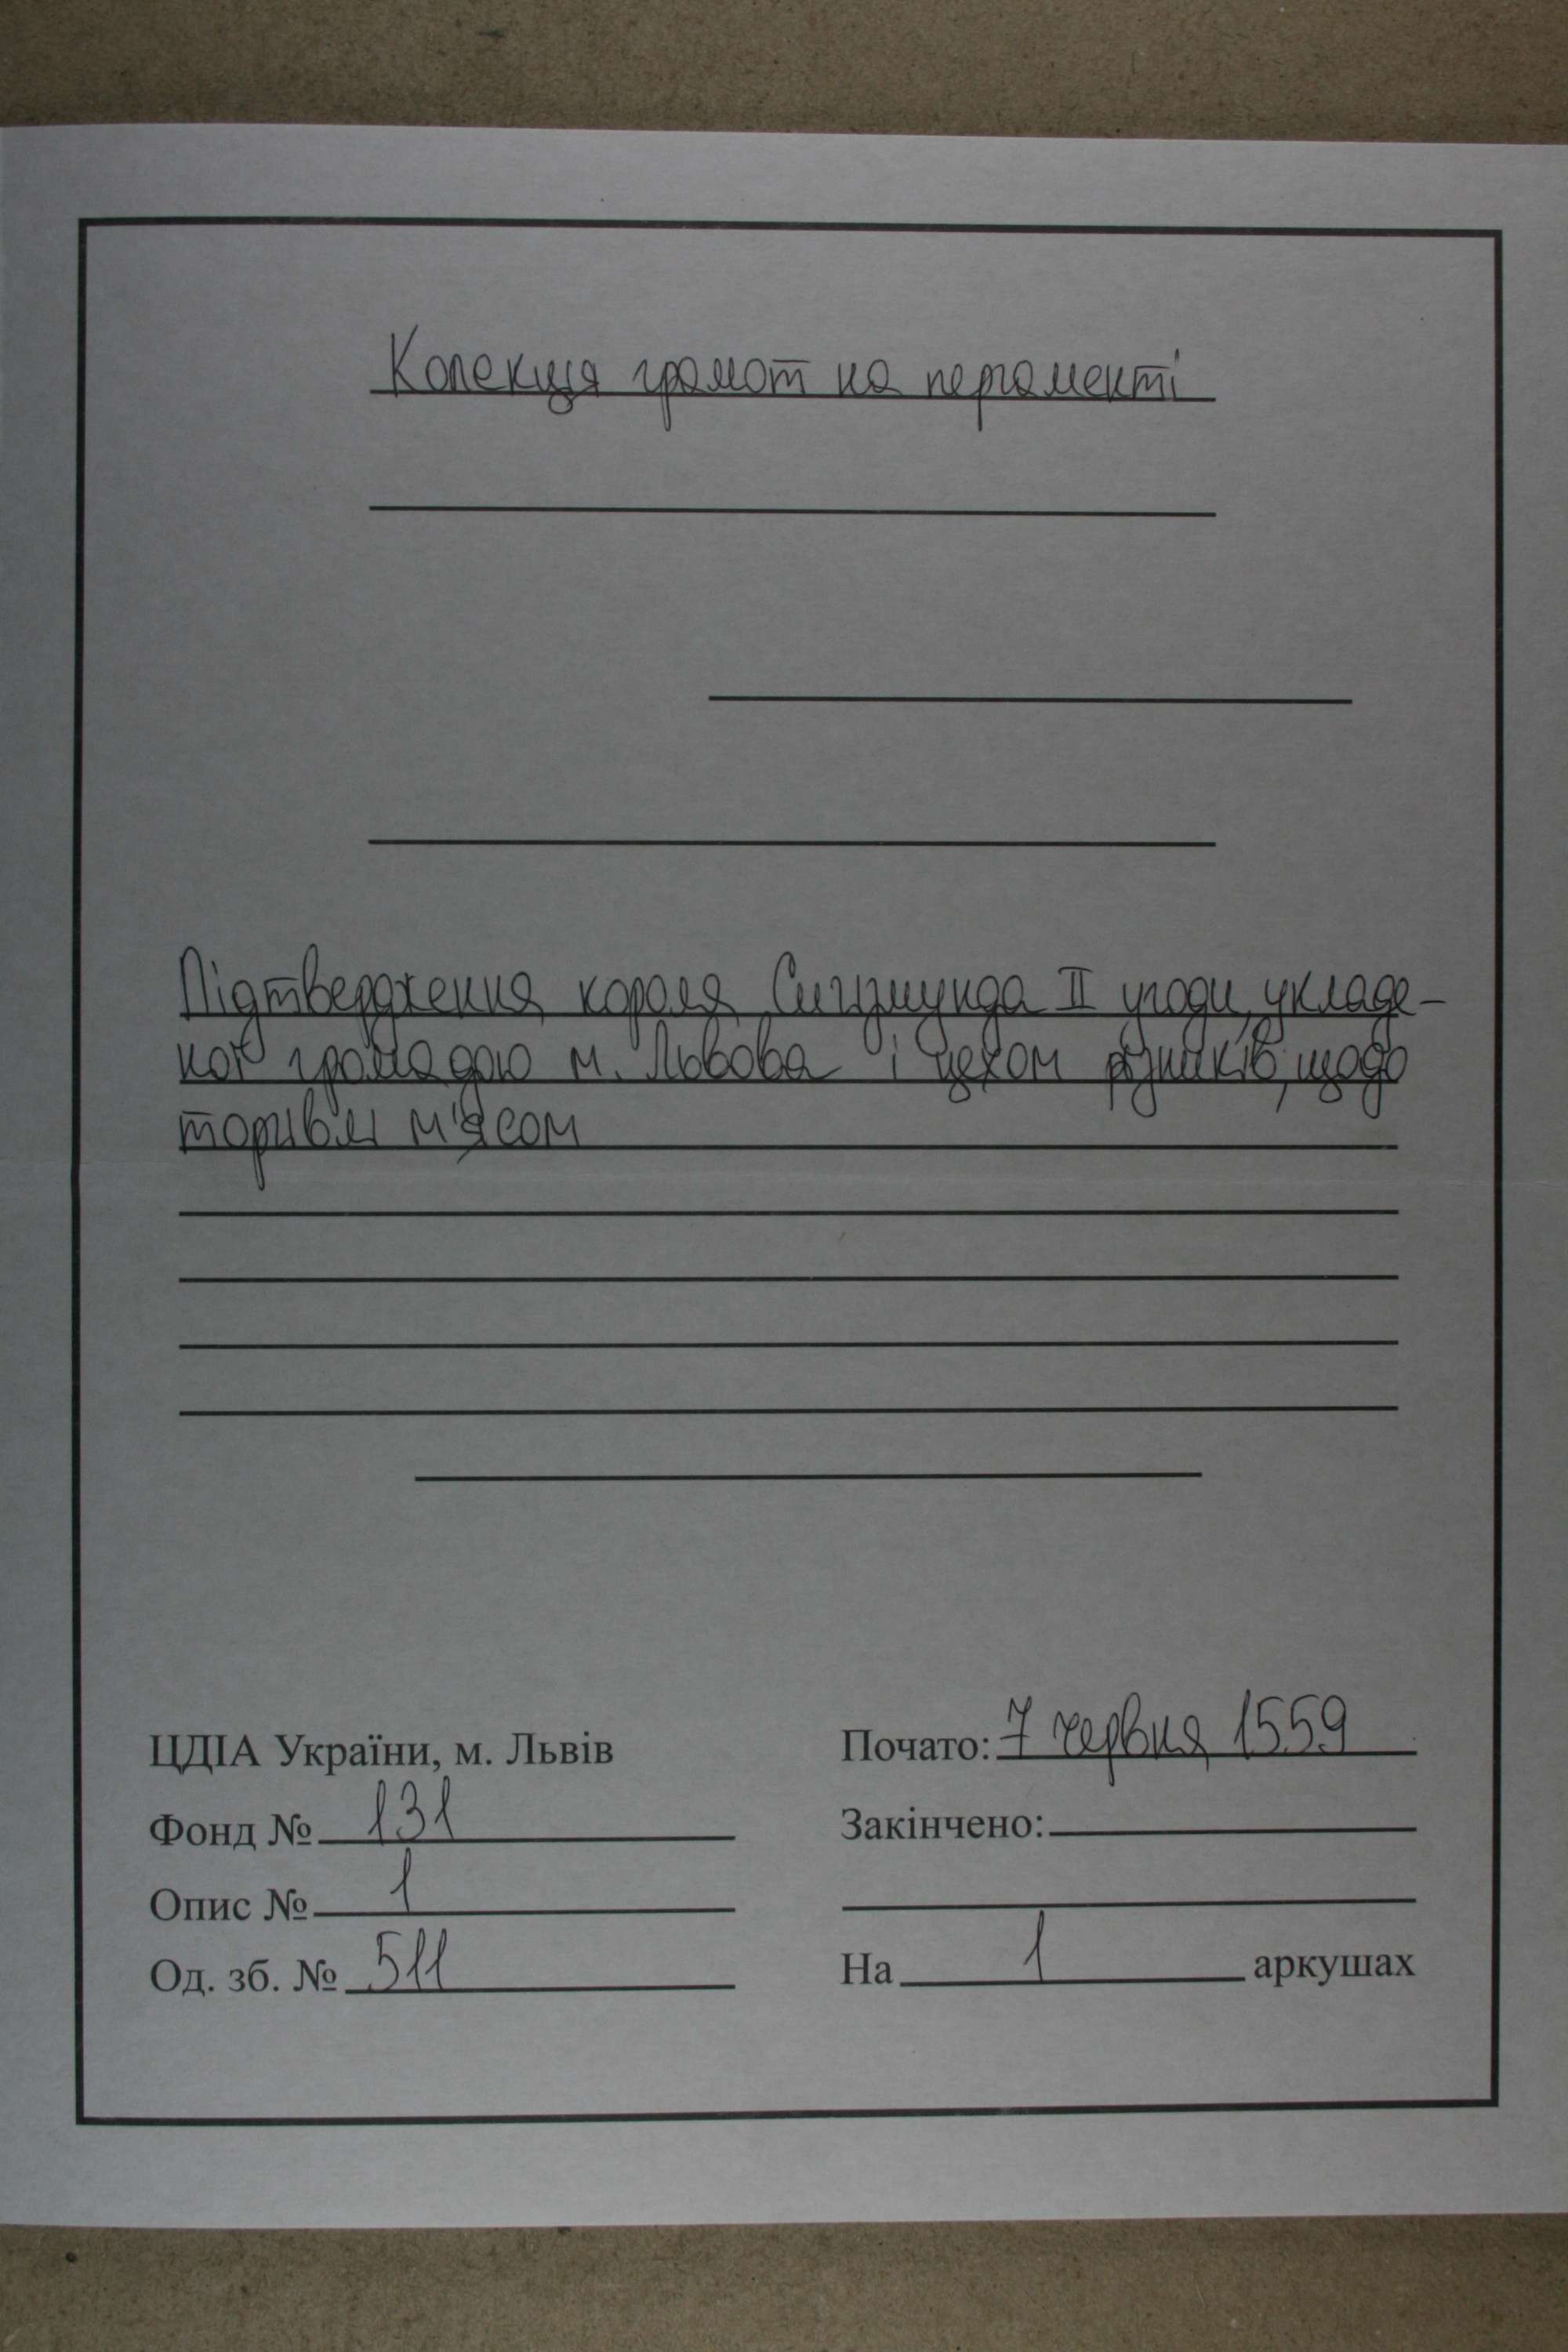 Колекція грамот на пергаменті
Підтвердження короля Сигізмунда II угоди, укладе-
ної громадою м. Львова і цехом різників, щодо
торгівлі м'ясом
ЦДІА України, м. Львів
Фонд № 131
Опис № 1
Од. зб. № 511
Почато: 7 червня 1559
Закінчено:
На 1 аркушах